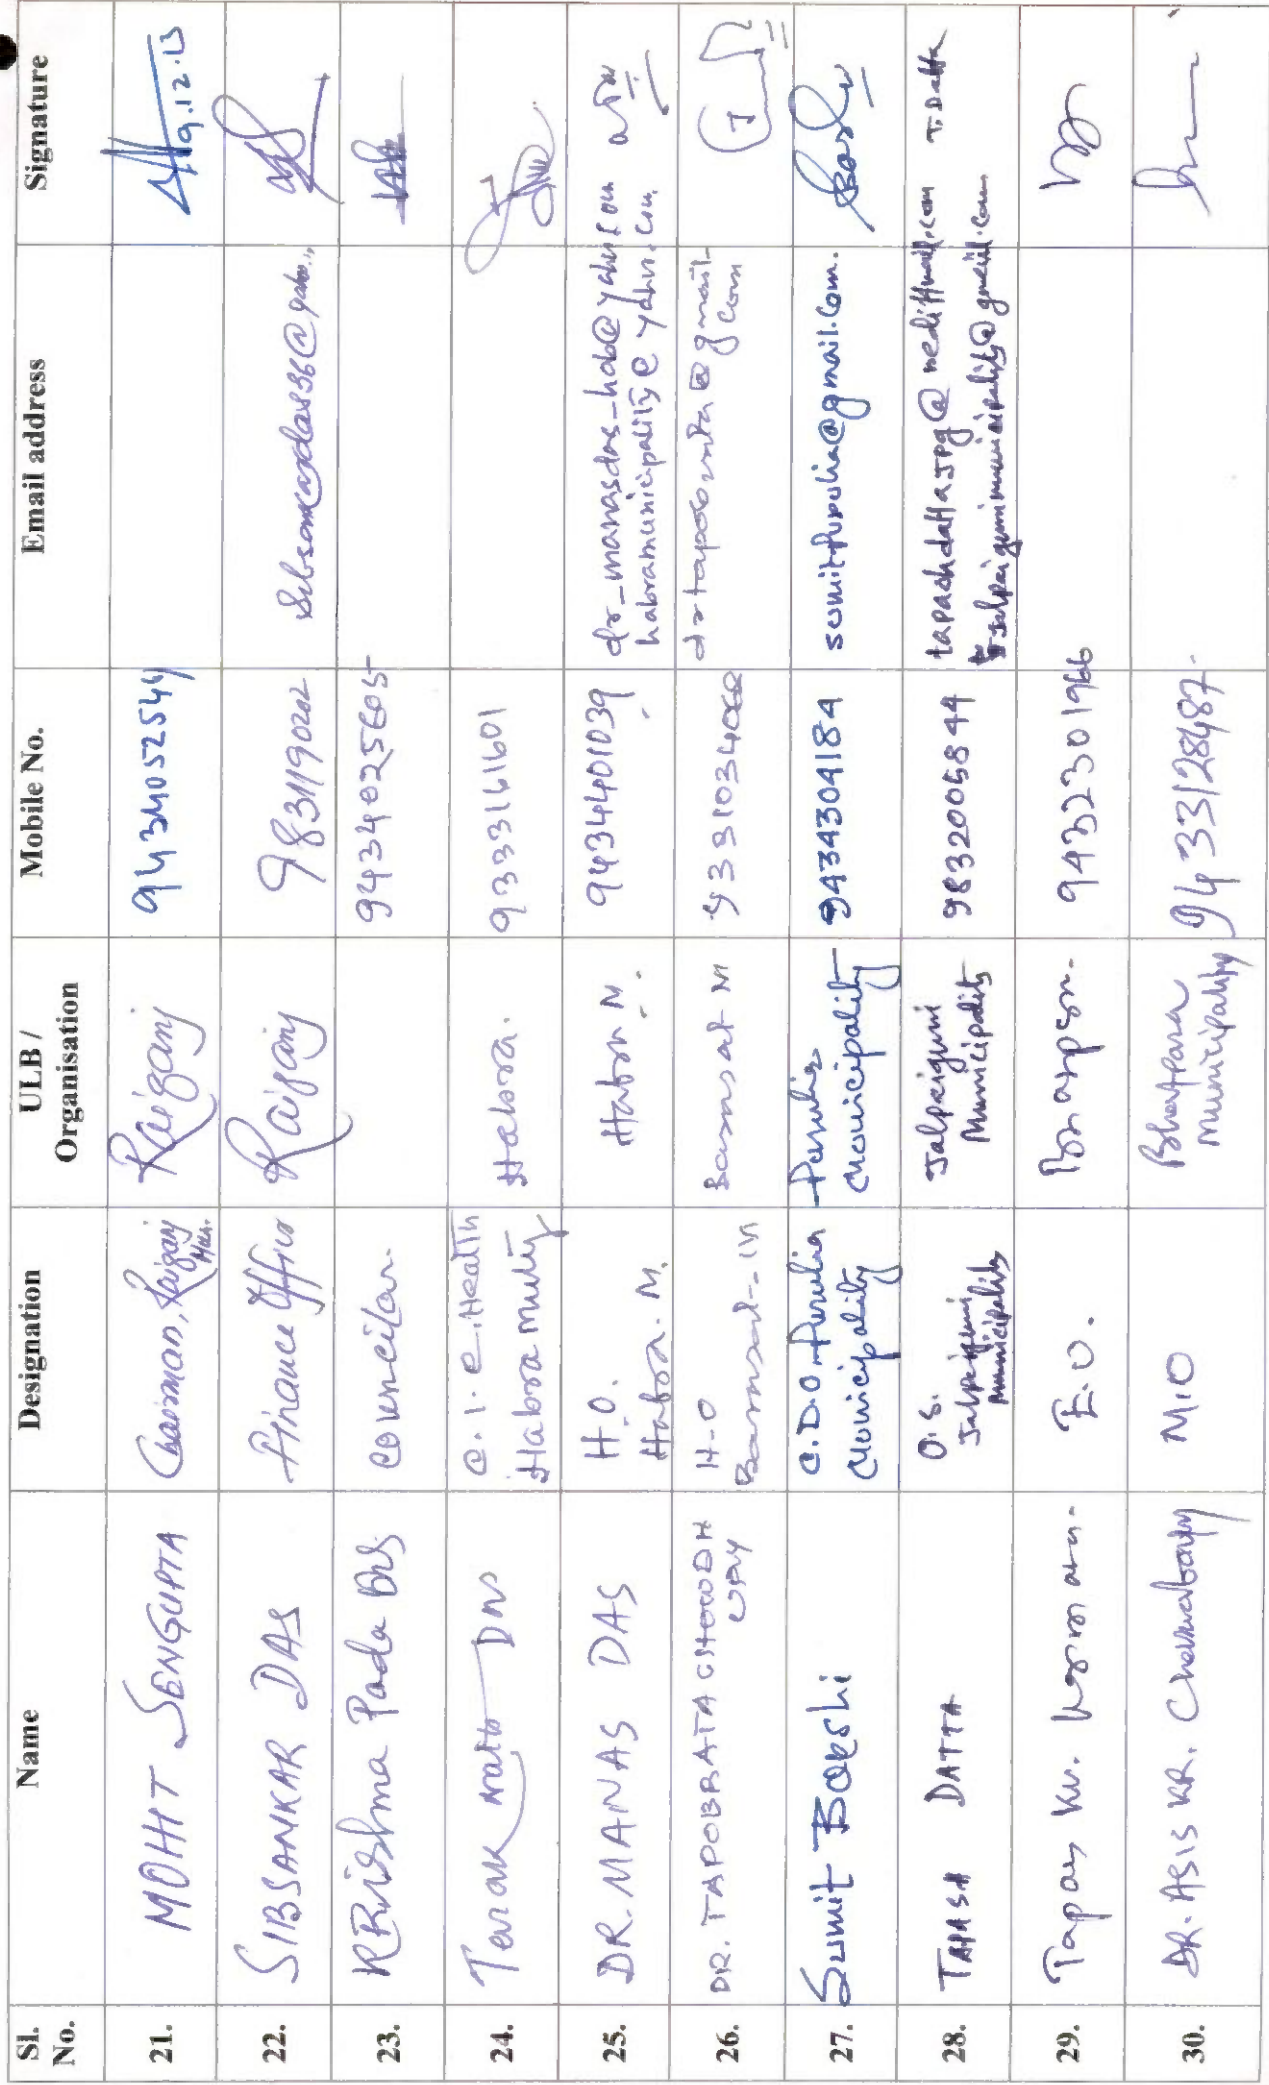 Sl. No. Name Designation ULB / Organisation Mobile No. Email address Signature
21. MOHIT SENGUPTA Chairman, Raiganj Mun. Raiganj 9434052544 9.12.13
22. SIBSANKAR DAS Finance Officer Raiganj 9831190202
23. KRishna Pada Das Councilor 9434025605
24. Tarak Nath DAS C.I.C. Health Habra Municipality Habra. 9333161601
25. DR. MANAS DAS H.O. Habra. M. Habra M. 9434401039 dr_manasdas_hab@yahoo.com
habramunicipality@yahoo.com
26. DR. TAPOBRATA CHOWDH
URY H-O Barasat-M Barasat M
gmail-
com
27. Sumit Bakshi C.D.O. Purulia Municipality Purulia Municipality 9434304184 sumitpurulia@gmail.com.
28. TAPASH DATTA O.S. Jalpaiguri Municipality Jalpaiguri Municipality 9832005844 tapashdattaJPg@rediffmail.com T. Datta
jalpaigurimunicipality@gmail.com
29. Tapas Kr. E.O. 9432301966
30. DR. ASIS KR. Chakraborty M.O Bhatpara Municipality 9433128487